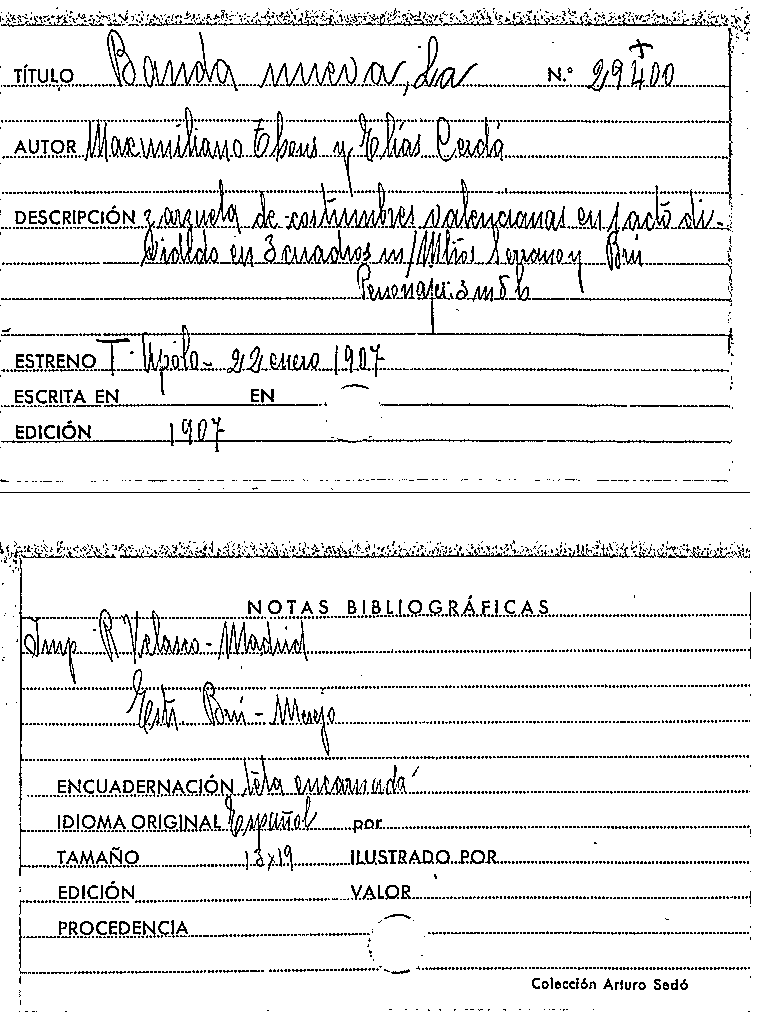 TÍTULO Banda nueva, La N.º 29400
AUTOR Maximiliano Thous y Elías Cerdá
DESCRIPCIÓN zarzuela de costumbres valencianas en 1 acto di-
vidido en 3 cuadros m/ Mtros Serrano y Brú
Personajes: 3 m 8 h
ESTRENO T. Apolo - 22 enero 1907
ESCRITA EN EN
EDICIÓN 1907
NOTAS BIBLIOGRÁFICAS
Imp R Velasco - Madrid
Estr. Brú -
ENCUADERNACIÓN tela encarnada
IDIOMA ORIGINAL Español por
TAMAÑO 13x19 ILUSTRADO POR
EDICIÓN VALOR
PROCEDENCIA
Colección Arturo Sedó